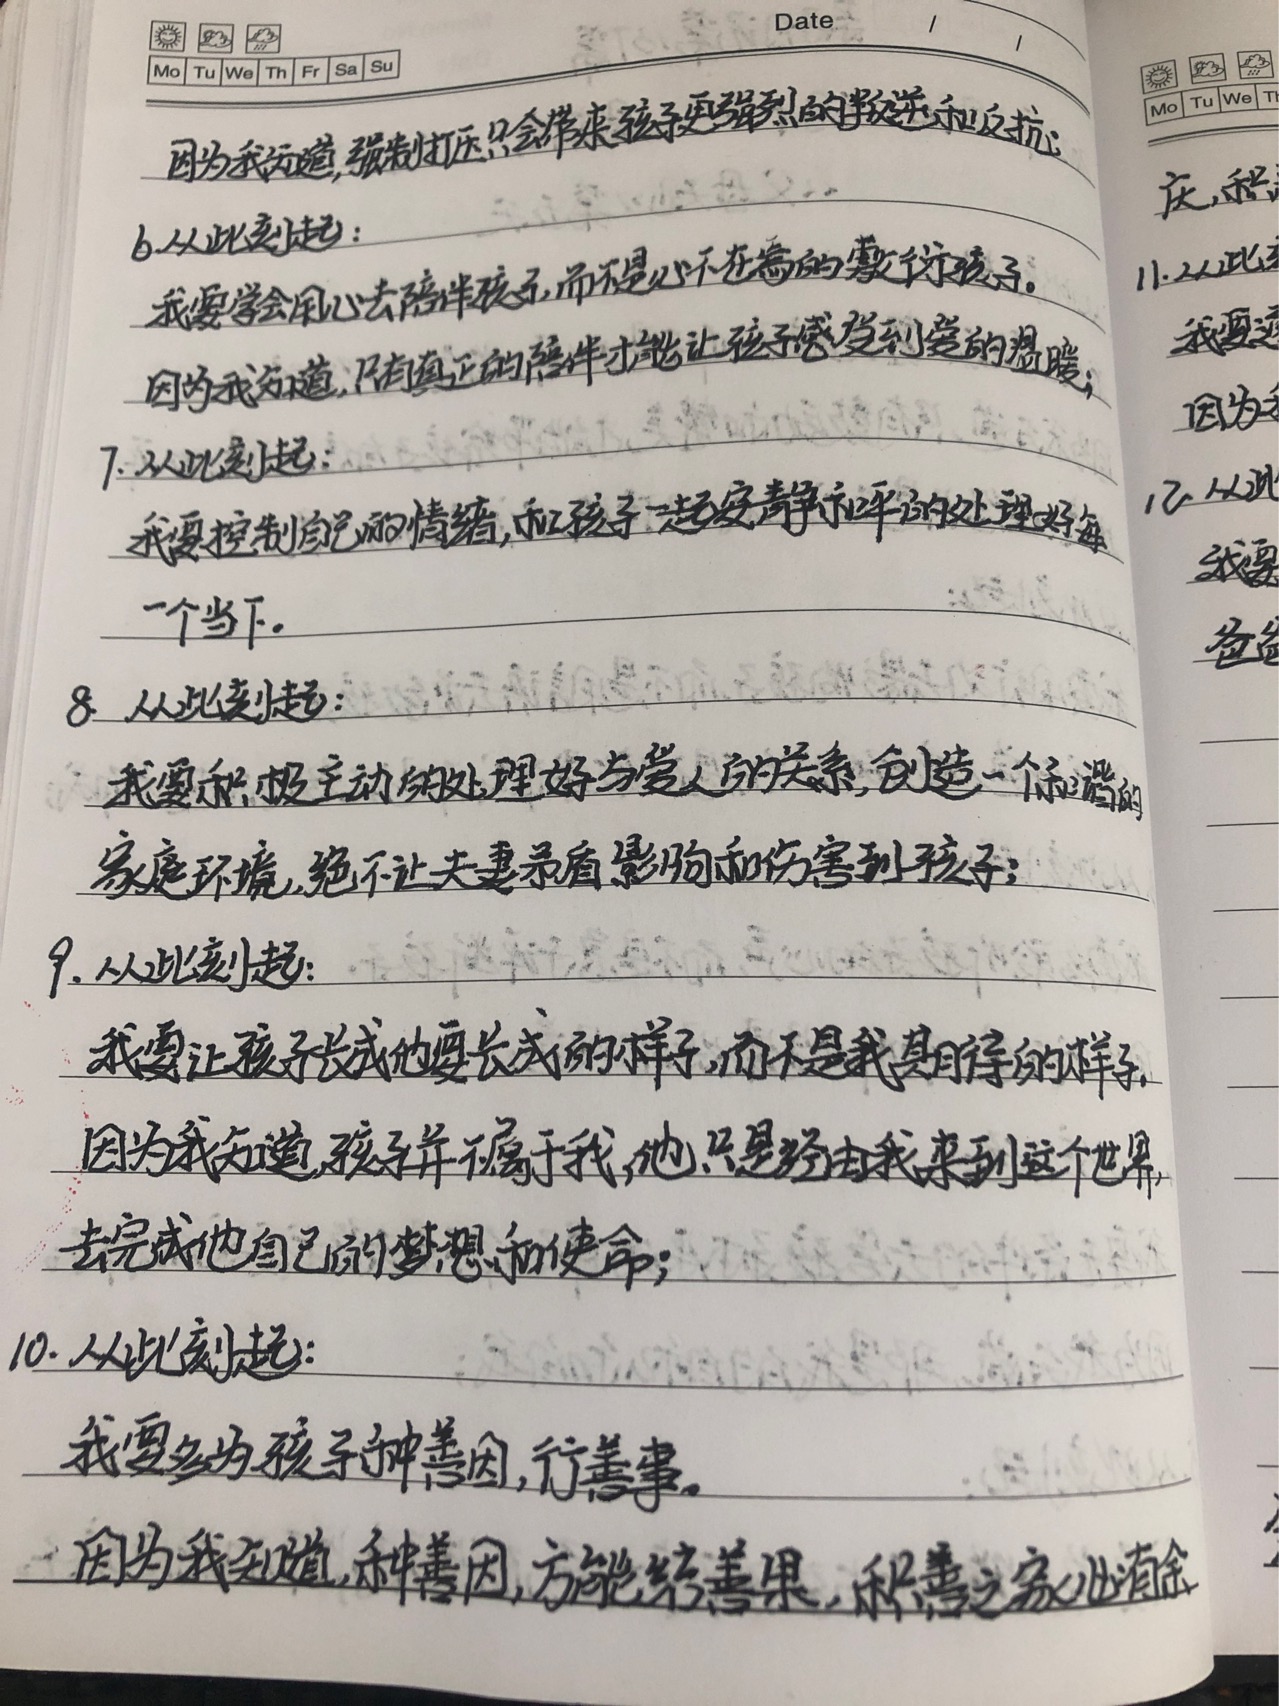 Date / /
Mo Tu We Th Fr Sa Su
因为我知道,强制打压只会带来孩子更强烈的叛逆和反抗;
6.从此刻起:
我要学会用心去陪伴孩子,而不是心不在焉的敷衍孩子。
因为我知道,只有真正的陪伴才能让孩子感受到爱的温暖;
7.从此刻起:
我要控制自己的情绪,和孩子一起安静和平的处理好每
一个当下。
8. 从此刻起:
我要积极主动的处理好与爱人的关系,创造一个和谐的
家庭环境,绝不让夫妻矛盾影响和伤害到孩子;
9.从此刻起:
我要让孩子长成他要长成的样子,而不是我其月待的样子,
因为我知道,孩子并不属于我,他只是经由我来到这个世界,
去完成他自己的梦想和使命;
10.从此刻起:
我要多为孩子种善因,行善事。
因为我知道,种善因,方能结善果,积善之家必有余
Mo Tu We Th
庆,积
11.从此
我要
因为
12.从此
我要
爸爸